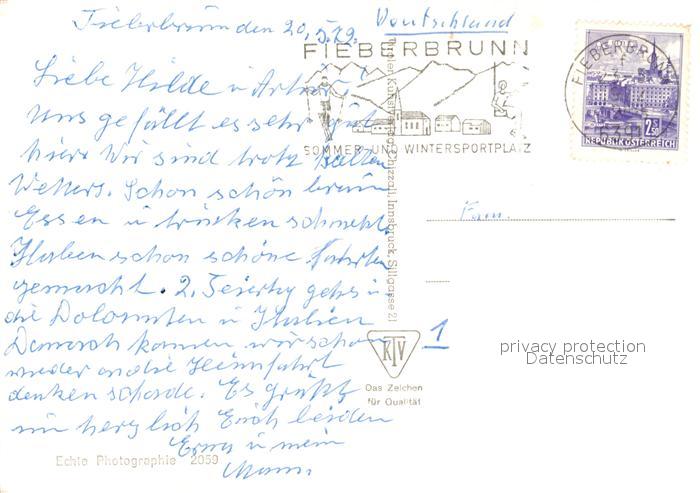 Fieberbrunn den 20.5.72.
Deutschland
FIEBERBRUNN
SOMMER- UND WINTERSPORTPLATZ
FIEBERBRUNN
6391
2.50
REPUBLIK ÖSTERREICH
Liebe Hilde u Artur!
Uns gefällt es sehr gut
hier. Wir sind trotz kalten
Wetters. Schon schön braun
Essen u trinken schmeckt.
Haben schon schöne Fahrten
gemacht. 2. Feiertag gehts in
die Dolomiten u Italien
Danach können wir schon
wieder an die Heimfahrt
denken schade. Es grüßt
herzlich Euch beiden
Erna u mein
Mann.
Innsbruck, Sillgasse 21
Fam.
1
KTV
Das Zeichen
für Qualität
Echte Photographie 2059
privacy protection
Datenschutz